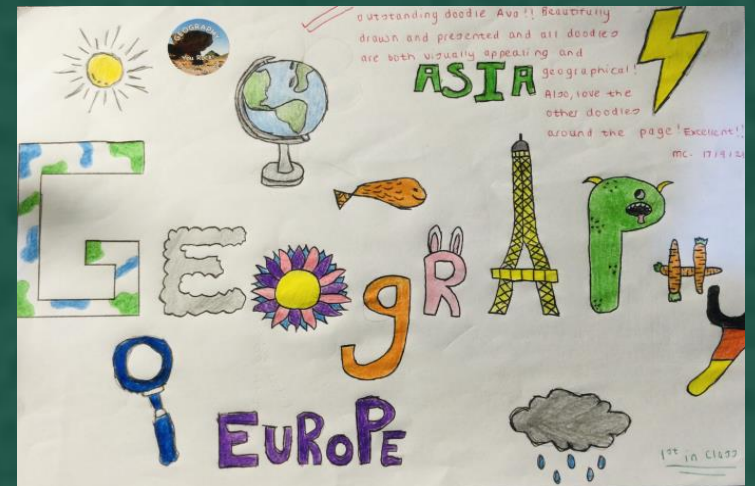 GEOGRAPHY
You Rock
outstanding doodle Ava!! Beautifully
drawn and presented and all doodles
are both visually appealing and
geographical!
Also, love the
other doodles
around the page! Excellent!!
MC. 17/9/21
ASIA
GEOgRAPHY
EUROPE
1st in class